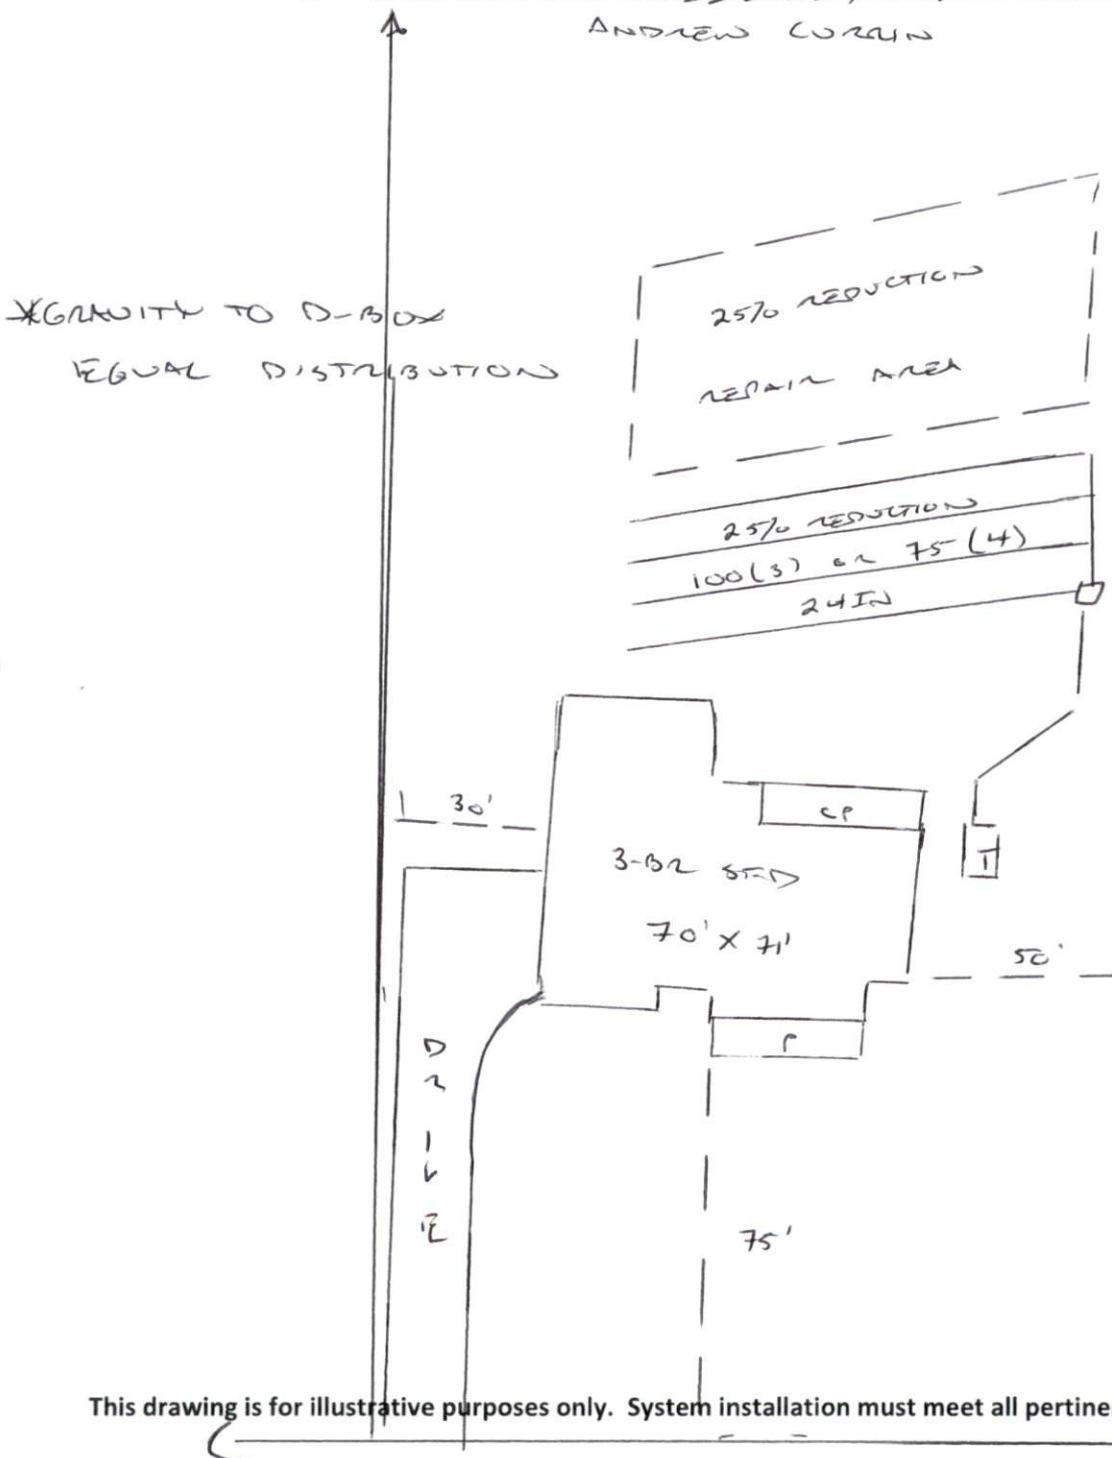 ANDREW CURRIN
25% REDUCTION
*GRAVITY TO D-BOX
EQUAL DISTRIBUTION
REPAIR AREA
25% REDUCTION
100(3) OR 75(4)
24IN
30'
CP
3-BR SFD
T
70' X 71'
50'
P
DRIVE
75'
This drawing is for illustrative purposes only. System installation must meet all pertine